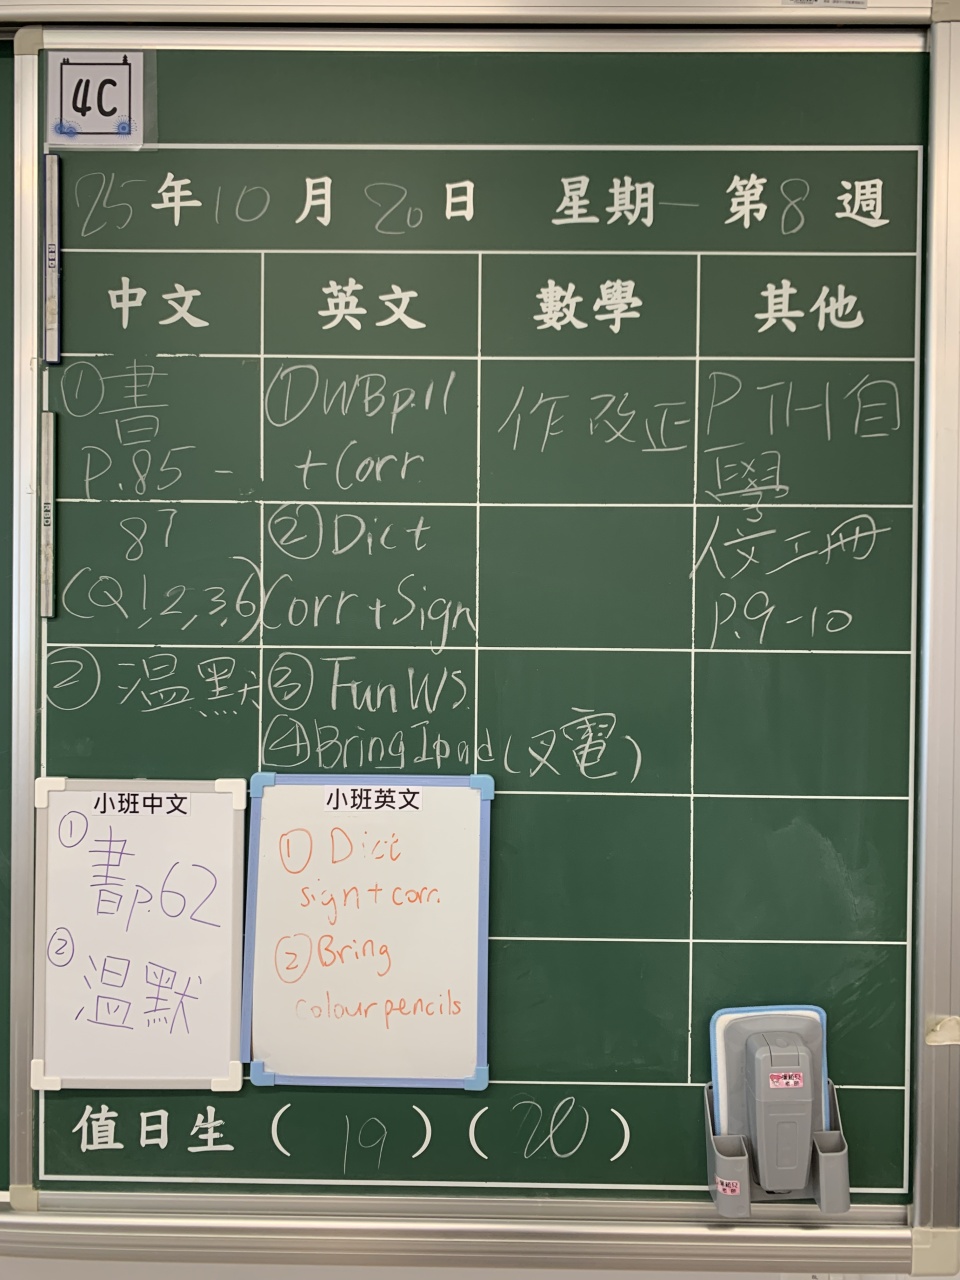 4C
25年10月20日 星期一 第8週
中文 英文 數學 其他
①書
P.85-
87
(Q1,2,3,6)
②溫默
①WBp.11
+Corr.
②Dict
Corr+Sign
③Fun WS.
④Bring Ipad(叉電)
作改正
PTH自
學
P.9-10
小班中文
①
書p.62
②
溫默
小班英文
①Dict
sign+corr.
②Bring
colour pencils
值日生(19)(20)